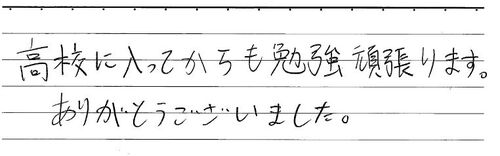 高校に入ってからも勉強頑張ります。
ありがとうございました。